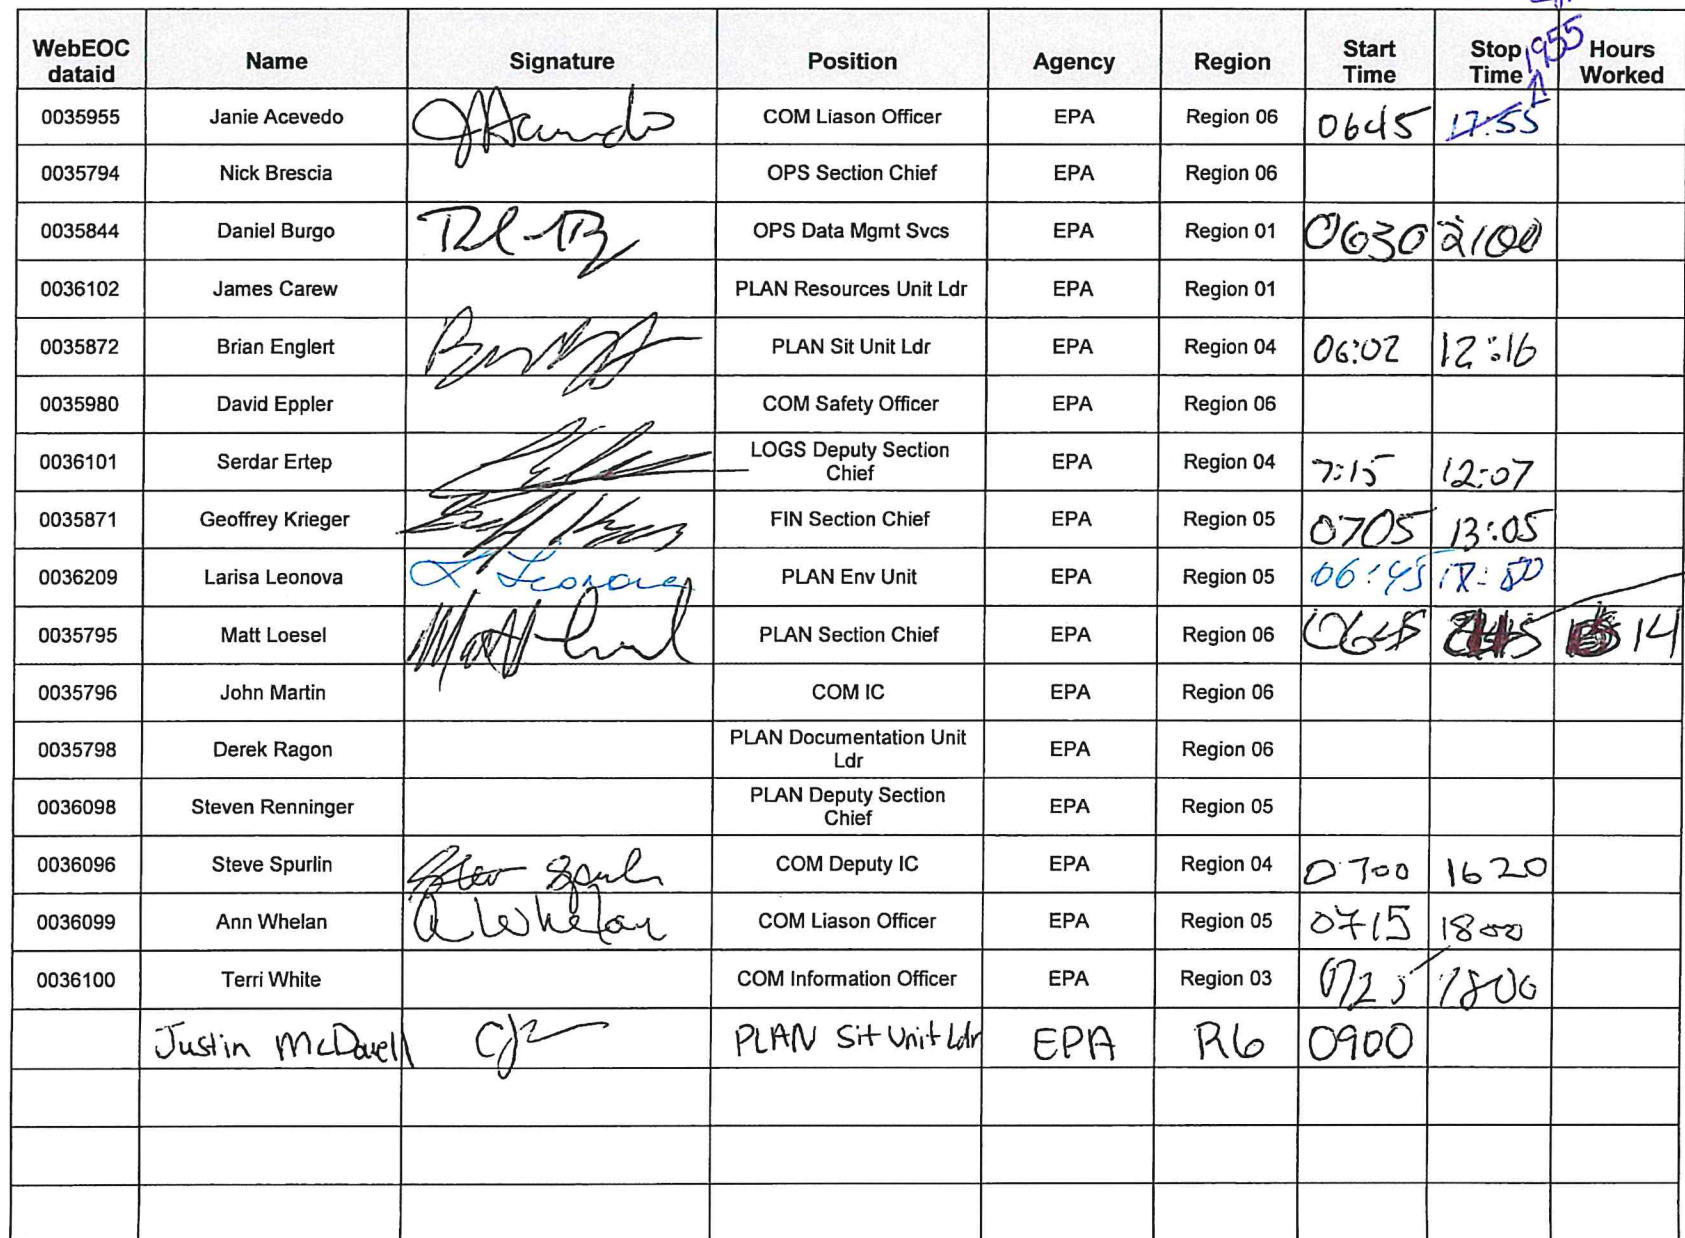 WebEOC dataid Name Signature Position Agency Region Start Time Stop Time 1955 Hours Worked
0035955 Janie Acevedo COM Liason Officer EPA Region 06 0645 17:55
0035794 Nick Brescia OPS Section Chief EPA Region 06
0035844 Daniel Burgo OPS Data Mgmt Svcs EPA Region 01 0630 2100
0036102 James Carew PLAN Resources Unit Ldr EPA Region 01
0035872 Brian Englert PLAN Sit Unit Ldr EPA Region 04 06:02 12:16
0035980 David Eppler COM Safety Officer EPA Region 06
0036101 Serdar Ertep LOGS Deputy Section Chief EPA Region 04 7:15 12:07
0035871 Geoffrey Krieger FIN Section Chief EPA Region 05 0705 13:05
0036209 Larisa Leonova L Leonova PLAN Env Unit EPA Region 05 06:45
0035795 Matt Loesel PLAN Section Chief EPA Region 06 0645 14
0035796 John Martin COM IC EPA Region 06
0035798 Derek Ragon PLAN Documentation Unit Ldr EPA Region 06
0036098 Steven Renninger PLAN Deputy Section Chief EPA Region 05
0036096 Steve Spurlin COM Deputy IC EPA Region 04 0700 1620
0036099 Ann Whelan A Whelan COM Liason Officer EPA Region 05 0715 1800
0036100 Terri White COM Information Officer EPA Region 03 0725 1800
Justin McDowell PLAN Sit Unit Ldr EPA R6 0900